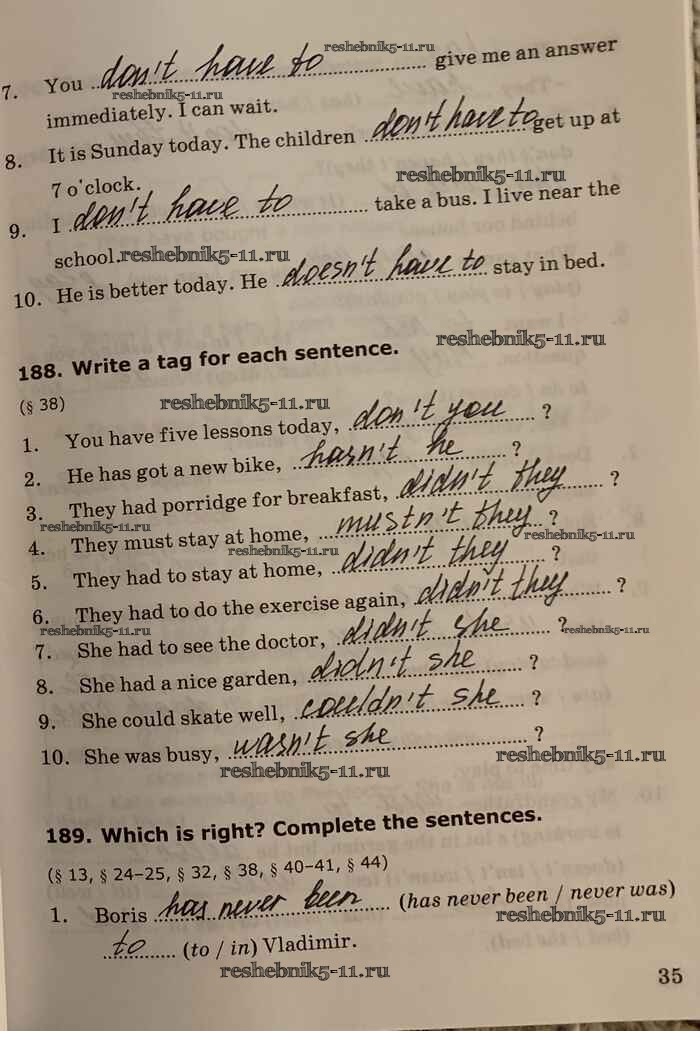 reshebnik5-11.ru
7. You don't have to give me an answer
reshebnik5-11.ru
immediately. I can wait.
8. It is Sunday today. The children don't have to get up at
7 o'clock.
reshebnik5-11.ru
9. I don't have to take a bus. I live near the
school. reshebnik5-11.ru
10. He is better today. He doesn't have to stay in bed.
reshebnik5-11.ru
188. Write a tag for each sentence.
(§ 38)
reshebnik5-11.ru
1. You have five lessons today, don't you ?
2. He has got a new bike, hasn't he ?
3. They had porridge for breakfast, didn't they ?
reshebnik5-11.ru
4. They must stay at home, mustn't they ?
reshebnik5-11.ru
reshebnik5-11.ru
5. They had to stay at home, didn't they ?
6. They had to do the exercise again, didn't they ?
reshebnik5-11.ru
7. She had to see the doctor, didn't she ?
reshebnik5-11.ru
8. She had a nice garden, didn't she ?
9. She could skate well, couldn't she ?
10. She was busy, wasn't she ?
reshebnik5-11.ru
reshebnik5-11.ru
189. Which is right? Complete the sentences.
(§ 13, § 24–25, § 32, § 38, § 40–41, § 44)
1. Boris has never been (has never been / never was)
reshebnik5-11.ru
to (to / in) Vladimir.
reshebnik5-11.ru
35